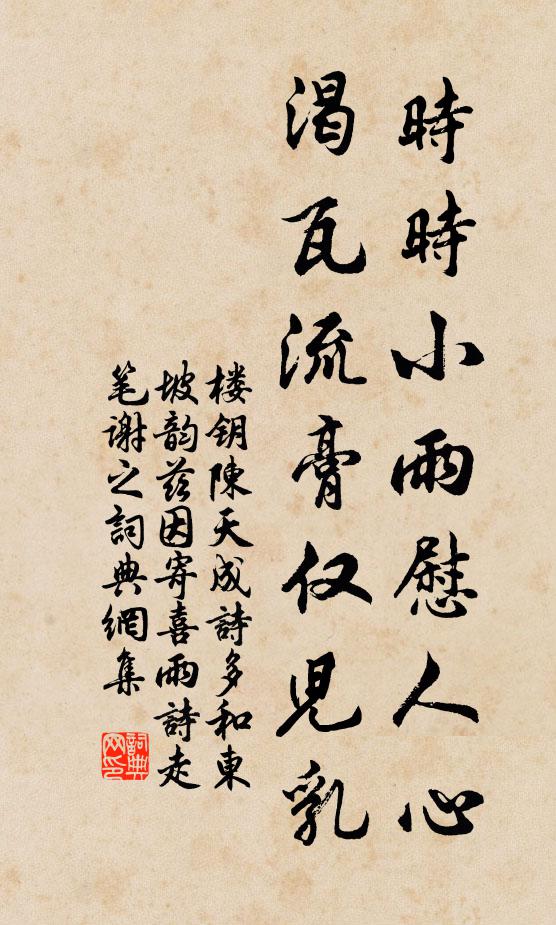 時時小雨慰人心
渴瓦流膏仅児乳
楼钥陳天成詩多和東
坡韵兹因寄喜雨詩走
笔谢之詞典網集
詞典
网印